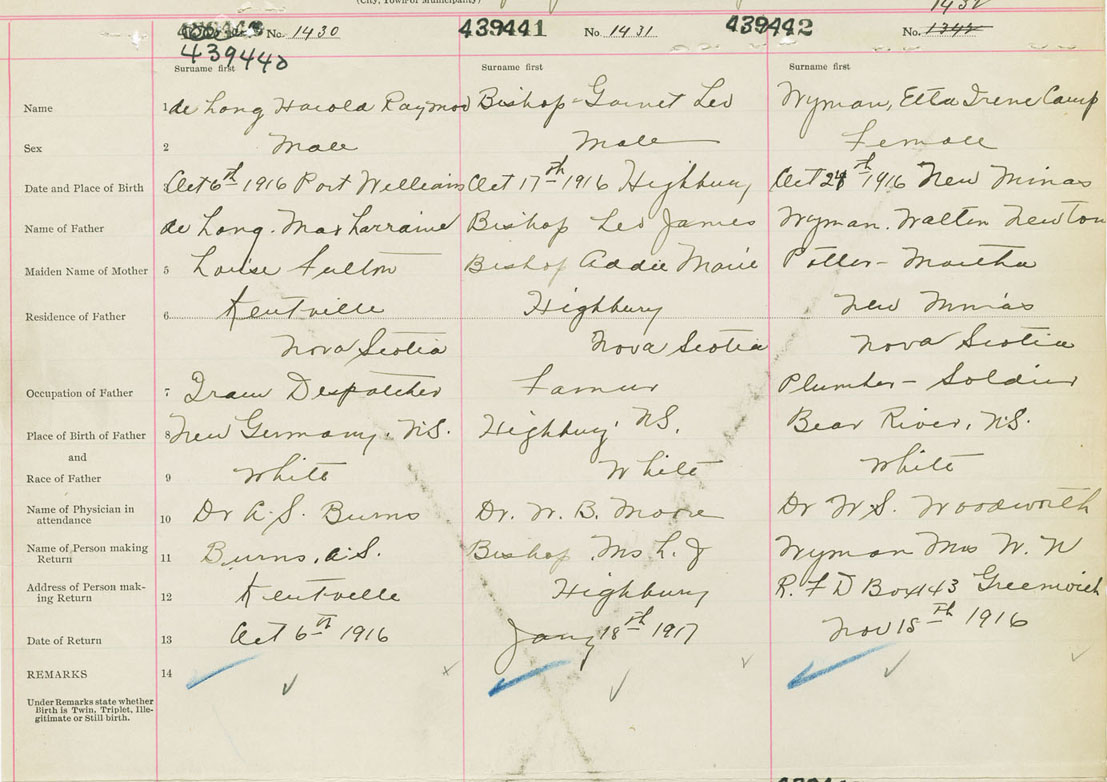 (City, Town or Municipality)
1432
No. 1430 439441 No 1431 439442 No. 1342
439440
Surname first Surname first Surname first
Name 1 de Long Harold Raymon Bishop - Garnet Leo Wyman, Etta Irene Camp
Sex 2 Male Male Female
Date and Place of Birth Oct 6th 1916 Port Williams Oct 17th 1916 Highbury Oct 24th 1916 New Minas
Name of Father de Long. Max Larraine Bishop Leo James Wyman. Walton Newton
Maiden Name of Mother 5 Louise Fulton Bishop Addie Marie Potter - Martha
Residence of Father 6 Kentville Highbury New Minas
Nova Scotia Nova Scotia Nova Scotia
Occupation of Father 7 Train Despatcher Farmer Plumber - Soldier
Place of Birth of Father 8 New Germany, N.S. Highbury, N.S. Bear River, N.S.
and
Race of Father 9 White White White
Name of Physician in
attendance 10 Dr A. S. Burns Dr. W. B. Moore Dr W S. Woodworth
Name of Person making
Return 11 Burns, A. S. Bishop Ms L. J Wyman Mrs W. N
Address of Person mak-
ing Return 12 Kentville Highbury R. F D Box 143 Greenwich
Date of Return 13 Oct 6th 1916 Jany 18th 1917 Nov 15th 1916
REMARKS 14
Under Remarks state whether
Birth is Twin, Triplet, Ille-
gitimate or Still birth.